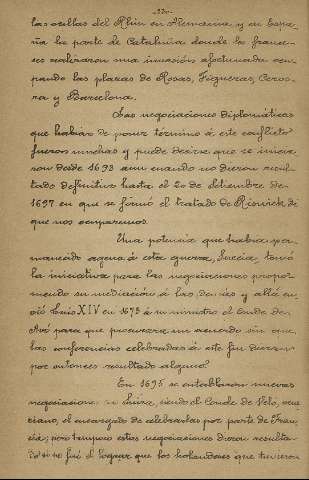 -320-
las orillas del Rhin en Alemania y en Espa-
ña la parte de Cataluña donde los france-
ses realizaron una invasión afortunada ocu-
pando las plazas de Rosas, Figueras, Gero-
na y Barcelona.
Las negociaciones diplomáticas
que habían de poner término á este conflicto
fueron muchas y puede decirse que se inicia-
ron desde 1693 aun cuando no dieron resul-
tado definitivo hasta el 20 de Setiembre de
1697 en que se firmó el tratado de Riswick de
que nos ocuparemos.
Una potencia que había per-
manecido agena á esta guerra, Suecia, tomó
la iniciativa para las negociaciones propo-
niendo su mediación á las demás y allá en-
vió Luis XIV en 1693 á su ministro el Conde de
para que procurara un acuerdo sin que
las conferencias celebradas á este fin dieran
por entonces resultado alguno.
En 1695 se entablaron nuevas
negociaciones siendo el Conde de Velo, vene-
ciano, el encargado de celebrarlas por parte de Fran-
cia; pero tampoco estas negociaciones dieron resulta-
do si se fué el lograr que los holandeses que tuvieron